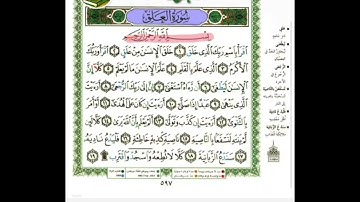 سُورَةُ العَلَقِ
بِسْمِ اللَّهِ الرَّحْمَٰنِ الرَّحِيمِ
اقْرَأْ بِاسْمِ رَبِّكَ الَّذِي خَلَقَ ١ خَلَقَ الْإِنسَانَ مِنْ عَلَقٍ ٢ اقْرَأْ وَرَبُّكَ
الْأَكْرَمُ ٣ الَّذِي عَلَّمَ بِالْقَلَمِ ٤ عَلَّمَ الْإِنسَانَ مَا لَمْ يَعْلَمْ ٥ كَلَّا إِنَّ
الْإِنسَانَ لَيَطْغَىٰ ٦ أَن رَّآهُ اسْتَغْنَىٰ ٧ إِنَّ إِلَىٰ رَبِّكَ الرُّجْعَىٰ ٨ أَرَأَيْتَ
الَّذِي يَنْهَىٰ ٩ عَبْدًا إِذَا صَلَّىٰ ١٠ أَرَأَيْتَ إِن كَانَ عَلَى الْهُدَىٰ ١١ أَوْ أَمَرَ
بِالتَّقْوَىٰ ١٢ أَرَأَيْتَ إِن كَذَّبَ وَتَوَلَّىٰ ١٣ أَلَمْ يَعْلَم بِأَنَّ اللَّهَ يَرَىٰ ١٤ كَلَّا لَئِن لَّمْ
يَنتَهِ لَنَسْفَعًا بِالنَّاصِيَةِ ١٥ نَاصِيَةٍ كَاذِبَةٍ خَاطِئَةٍ ١٦ فَلْيَدْعُ نَادِيَهُ
١٧ سَنَدْعُ الزَّبَانِيَةَ ١٨ كَلَّا لَا تُطِعْهُ وَاسْجُدْ وَاقْتَرِب ١٩
٥٩٧